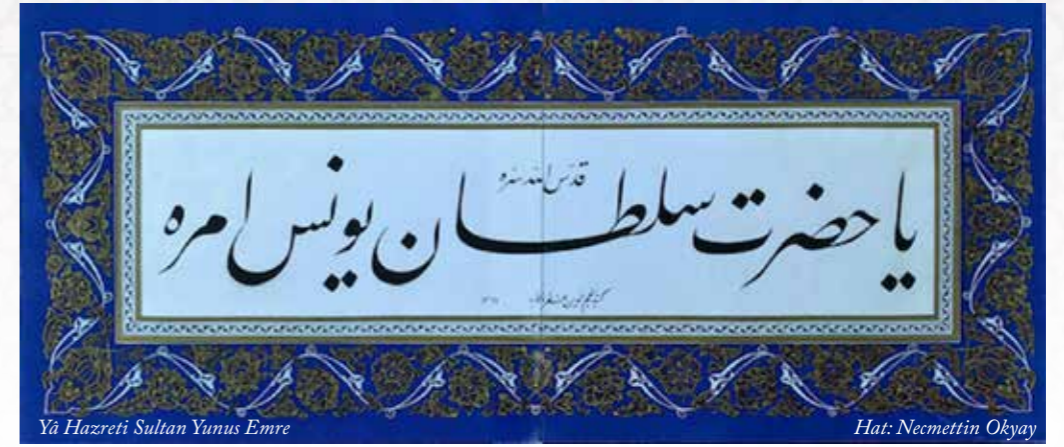 قدس الله سره
يا حضرت سلطان يونس امره
Yâ Hazreti Sultan Yunus Emre
Hat: Necmettin Okyay